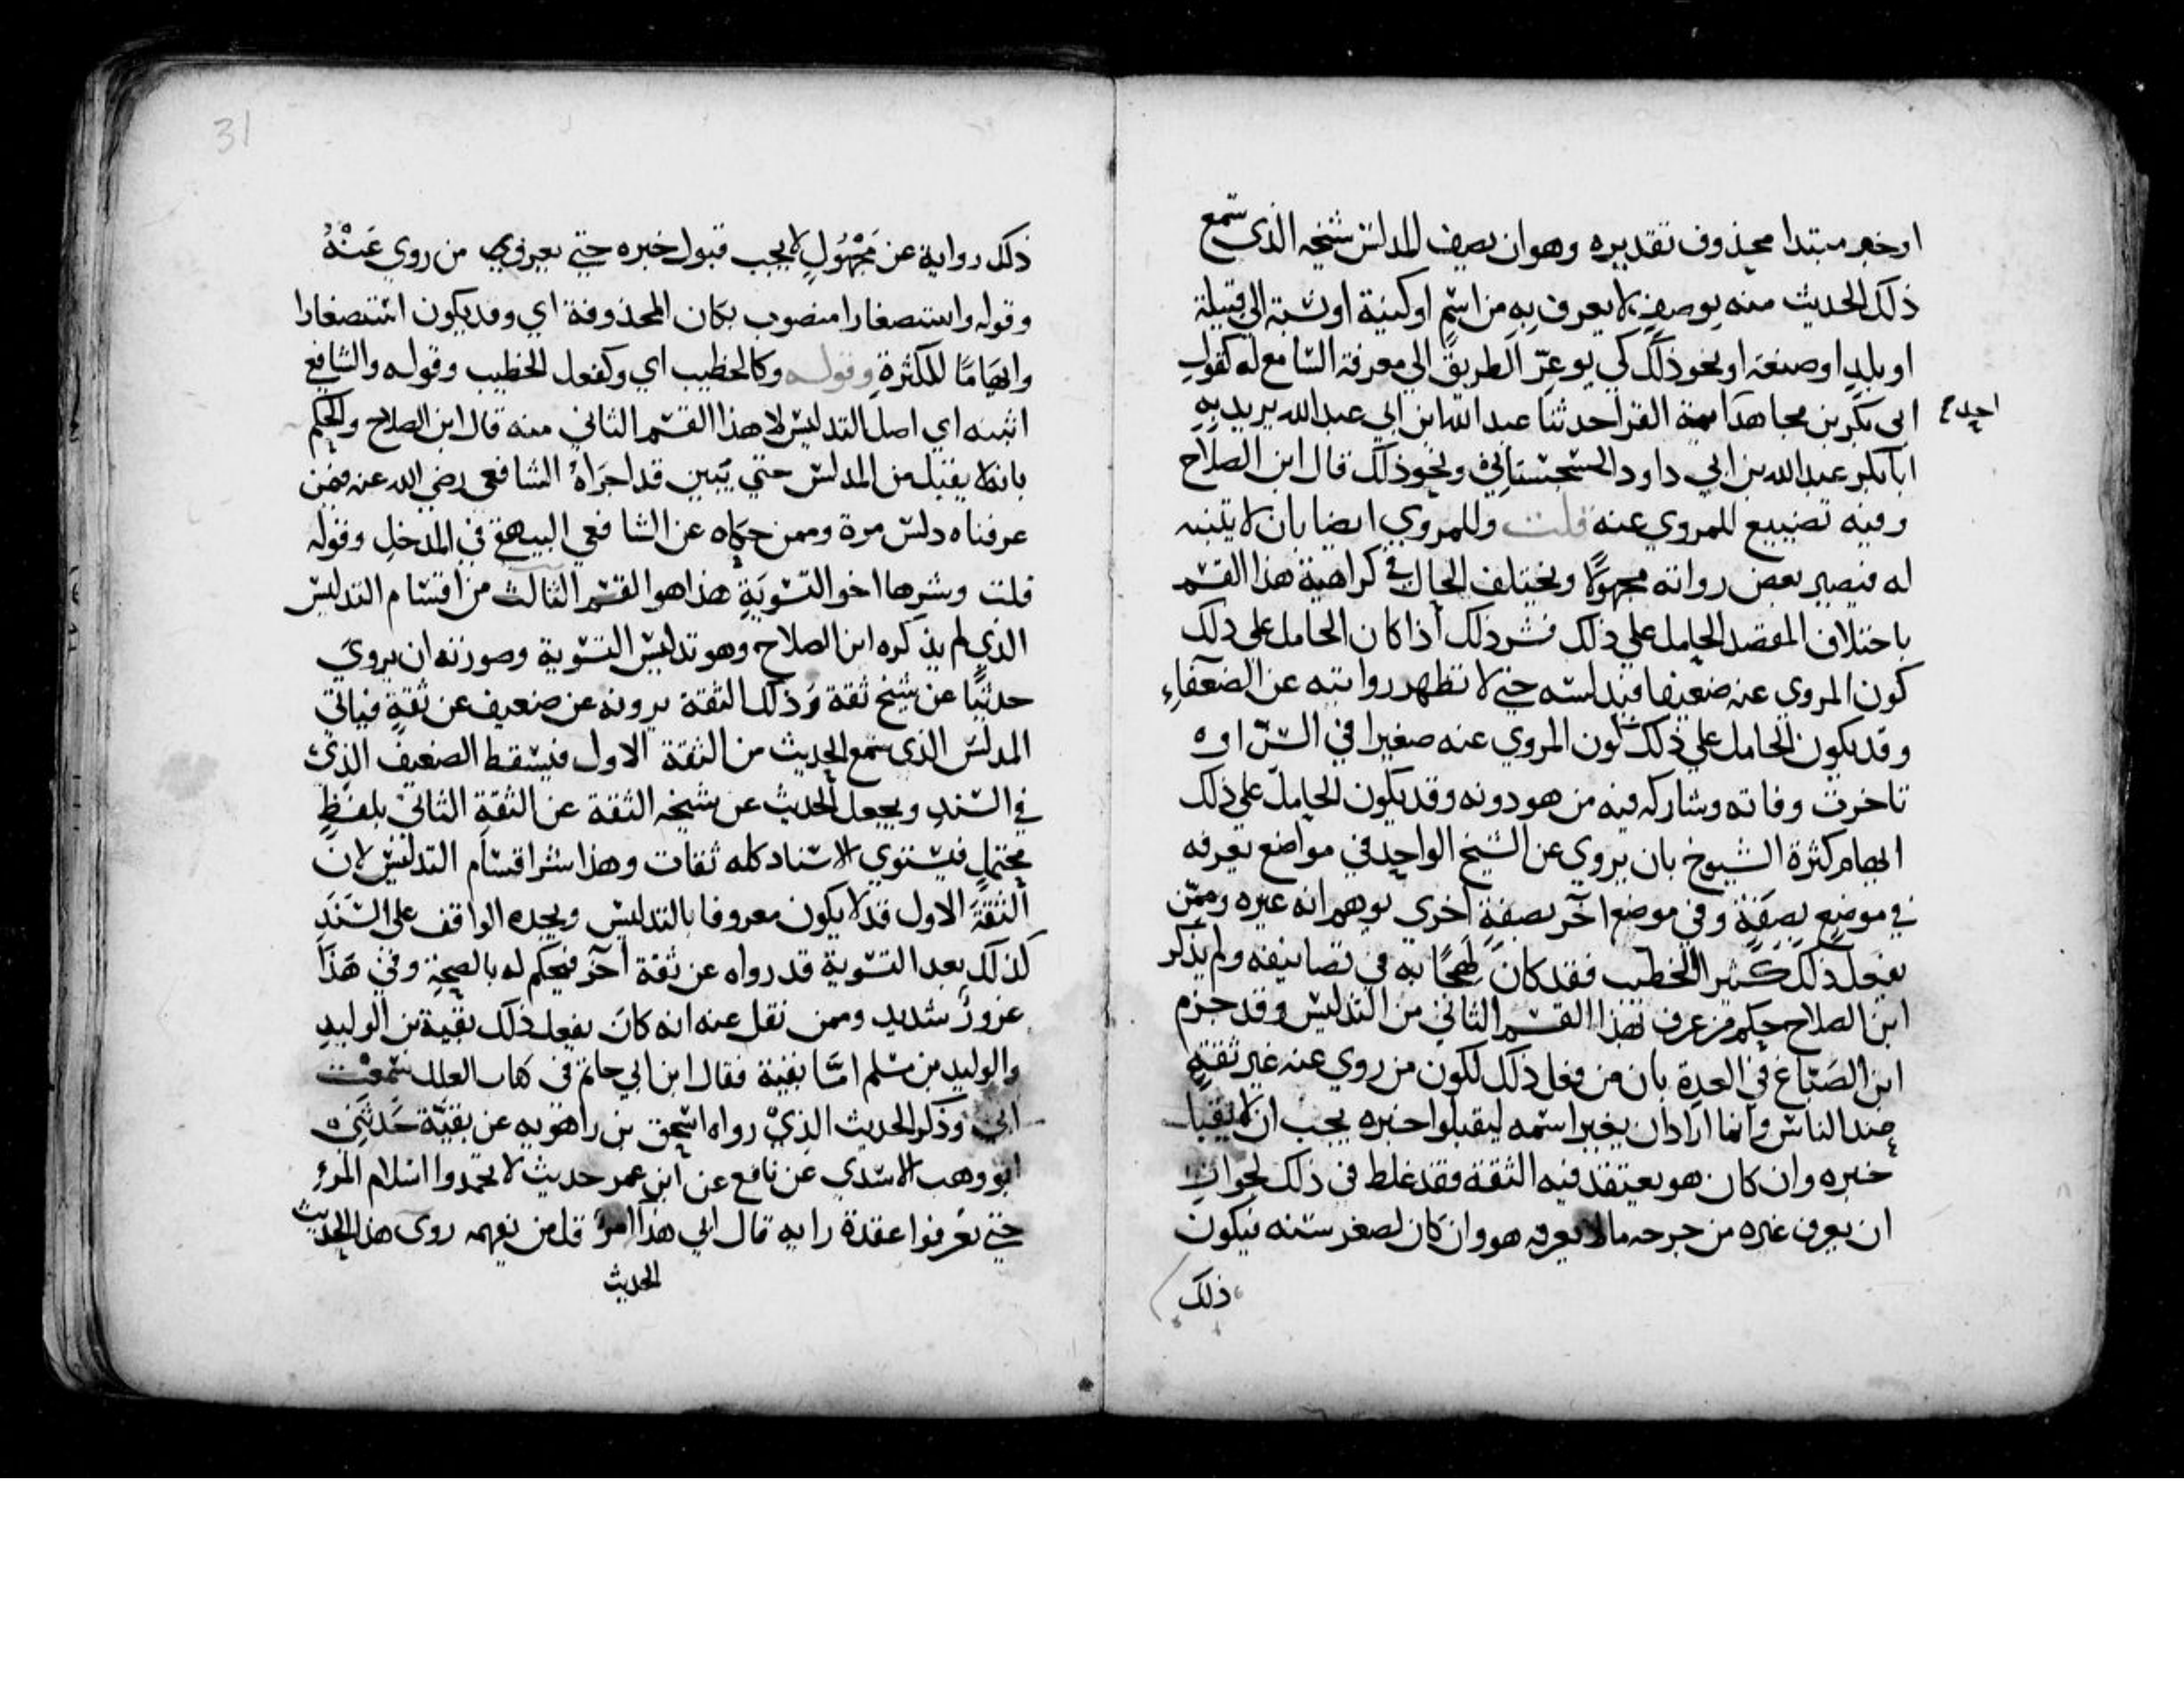 او خبر مبتدا محذوف تقديره وهو ان يصف المدلس شيخه الذي سمع
ذلك الحديث منه بوصف لا يعرف به من اسم او كنية او نسبة الي قبيلة
او بلد او صنعة او نحو ذلك كي يوعر الطريق الي معرفة السامع له كقول
احد
ابي بكر بن مجاهد ايمة القرا حدثنا عبد الله ابن ابي عبد الله يريد به
ابا بكر عبد الله بن ابي داود السجستاني ونحو ذلك قال ابن الصلاح
وفيه تضييع للمروي عنه قلت وللمروي ايضا بان لا يتنبه
له فيصير بعض رواته مجهولا ويختلف الحال في كراهية هذا القسم
باختلاف المقصد الحامل علي ذلك فشر ذلك اذا كان الحامل علي ذلك
كون المروي عنه ضعيفا فيدلسه حتي لا تظهر روايته عن الضعفاء
وقد يكون الحامل علي ذلك كون المروي عنه صغيرا في السن او ه
تاخرت وفاته وشاركه فيه من هو دونه وقد يكون الحامل علي ذلك
ايهام كثرة الشيوخ بان يروي عن الشيخ الواحد في مواضع يعرفه
في موضع بصفة وفي موضع آخر بصفة اخري يوهم انه غيره وممن
يفعل ذلك كثيرا الخطيب فقد كان لهجا به في تصانيفه ولم يذكر
ابن الصلاح حكم من عرف بهذا القسم الثاني من التدليس وقد جزم
ابن الصباغ في العدة بان من فعل ذلك لكون من روي عنه غير ثقة
عند الناس وانما اراد ان يغير اسمه ليقبلوا خبره يجب ان لا يقبل
خبره وان كان هو يعتقد فيه الثقة فقد غلط في ذلك لجواز
ان يعرف غيره من جرحه ما لا يعرفه هو وان كان لصغر سنه فيكون
ذلك
31
ذلك رواية عن مَجْهُولٍ لا يجب قبول خبره حتي يعرف من روي عَنْهُ
وقوله واستصغارا منصوب بكان المحذوفة اي وقد يكون استصغارا
وايهاما للكثرة وقوله وكالخطيب اي وكفعل الخطيب وقوله والشافع
اثبته اي اصل التدليس لا هذا القسم الثاني منه قال ابن الصلاح والحكم
بانه لا يقبل من المدلس حتي يبين قد اجراه الشافعي رضي الله عنه فيمن
عرفناه دلس مرة وممن حكاه عن الشافعي البيهقي في المدخل وقوله
قلت وشرها اخو التسوية هذا هو القسم الثالث من اقسام التدليس
الذي لم يذكره ابن الصلاح وهو تدليس التسوية وصورته ان يروي
حديثا عن شيخ ثقة وذلك الثقة يرويه عن ضعيف عن ثقة فياتي
المدلس الذي سمع الحديث من الثقة الاول فيسقط الضعيف الذي
في السند ويجعل الحديث عن شيخه الثقة عن الثقة الثاني بلفظ
محتمل فيستوي الاسناد كله ثقات وهذا شر اقسام التدليس لان
الثقة الاول قد لا يكون معروفا بالتدليس ويجده الواقف على السند
كذلك بعد التسوية قد رواه عن ثقة آخر فيحكم له بالصحة وفي هذا
غرور شديد وممن نقل عنه انه كان يفعل ذلك بقية بن الوليد
والوليد بن مسلم امّا بقية فقال ابن ابي حاتم في كتاب العلل سمعت
ابي وذكر الحديث الذي رواه اسحق بن راهويه عن بقية حَدثني ه
ابو وهب الاسدي عن نافع عن ابن عمر حديث لا تحمدوا اسلام المرء
حتي تعرفوا عقدة رايه قال ابي هذا امرٌ قل من يفهمه روي هذا الحديث
الحديث